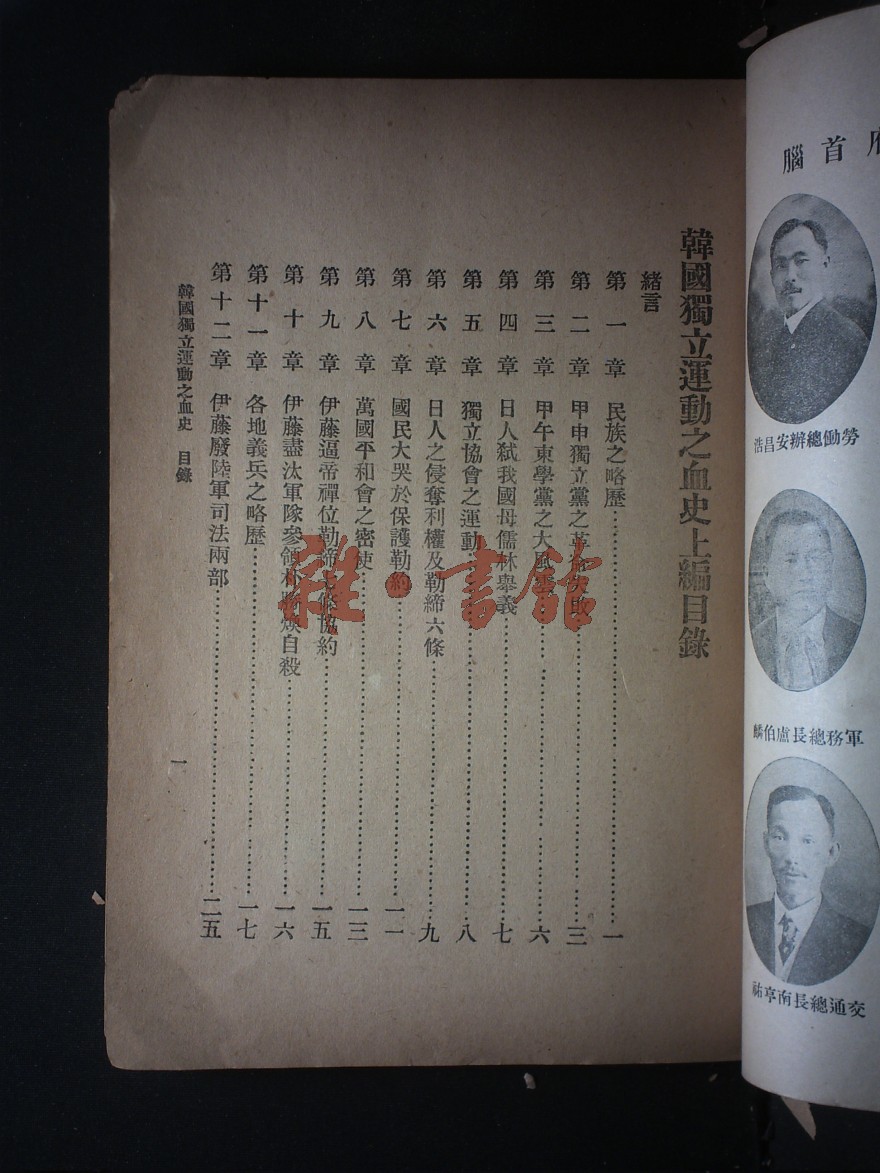 韓國獨立運動之血史上編目錄
緒言
第一章 民族之略歷……一
第二章 甲申獨立黨之革命失敗……三
第三章 甲午東學黨之大風雲……六
第四章 日人弒我國母儒林舉義……七
第五章 獨立協會之運動……八
第六章 日人之侵奪利權及勒締六條……九
第七章 國民大哭於保護勒約……一一
第八章 萬國平和會之密使……一三
第九章 伊藤逼帝禪位勒締七條協約……一五
第十章 伊藤盡汰軍隊參領朴昇煥自殺……一六
第十一章 各地義兵之略歷……一七
第十二章 伊藤廢陸軍司法兩部……二五
韓國獨立運動之血史 目錄
一
雅·書館
腦首府
浩昌安辦總働勞
麟伯盧長總務軍
祐亨南長總通交